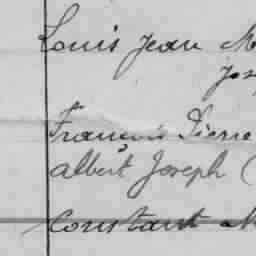 Louis Jean M
Jos
François Pierre
Albert Joseph (
Constant M